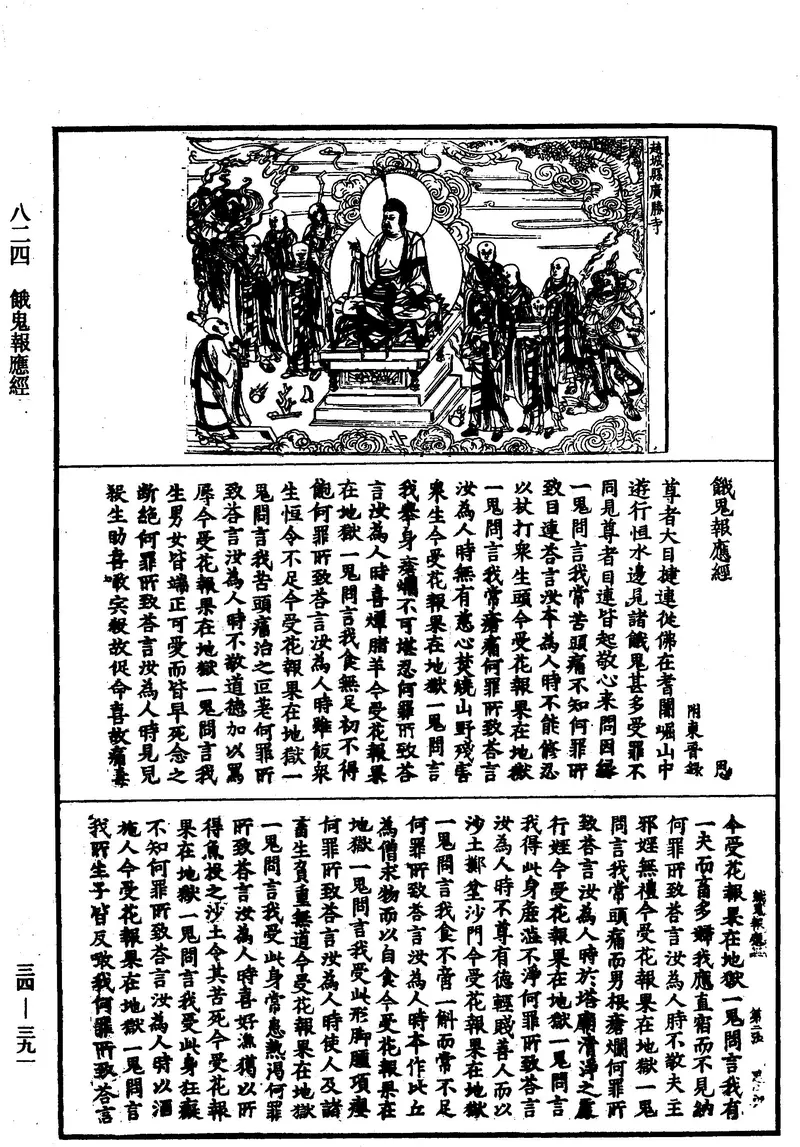 八二四　餓鬼報應經
趙城縣廣勝寺
餓鬼報應經　思
附東晉錄
尊者大目揵連從佛在耆闍崛山中
遊行恒水邊見諸餓鬼甚多受罪不
同見尊者目連皆起敬心來問因緣
一鬼問言我常苦頭痛不知何罪所
致目連荅言汝本為人時不能修忍
以杖打衆生頭今受花報果在地獄
一鬼問言我常瘡痛何罪所致荅言
汝為人時無有慈心焚燒山野殘害
衆生今受花報果在地獄一鬼問言
我舉身瘡爛不可堪忍何罪所致荅
言汝為人時喜燖猪羊今受花報果
在地獄一鬼問言我食無足初不得
飽何罪所致荅言汝為人時雖飯衆
生恒令不足今受花報果在地獄一
鬼問言我苦頭痛治之叵差何罪所
致荅言汝為人時不敬道德加以罵
辱今受花報果在地獄一鬼問言我
生男女皆端正可愛而皆早死念之
斷絕何罪所致荅言汝為人時見兒
殺生助喜噉宍殺故促命喜故痛毒
今受花報果在地獄一鬼問言我有
一夫而畜多婦我應直宿而不見納
何罪所致荅言汝為人時不敬夫主
邪婬無禮今受花報果在地獄一鬼
問言我常頭痛而男根瘡爛何罪所
致荅言汝為人時於塔廟清淨之處
行婬今受花報果在地獄一鬼問言
我得此身麁澁不淨何罪所致荅言
汝為人時不尊有德輕賤善人而以
沙土擲坌沙門今受花報果在地獄
一鬼問言我食不啻一斛而常不足
何罪所致荅言汝為人時本作比丘
為僧求物而以自食今受花報果在
地獄一鬼問言我受此形脚腫項癭
何罪所致荅言汝為人時使人及諸
畜生負重無道今受花報果在地獄
一鬼問言我受此身常患熱渴何罪
所致荅言汝為人時喜好漁獵以所
得魚投之沙土令其苦死今受花報
果在地獄一鬼問言我受此身狂癡
不知何罪所致荅言汝為人時以酒
施人今受花報果在地獄一鬼問言
我所生子皆反噉我何罪所致荅言
三四—三九一